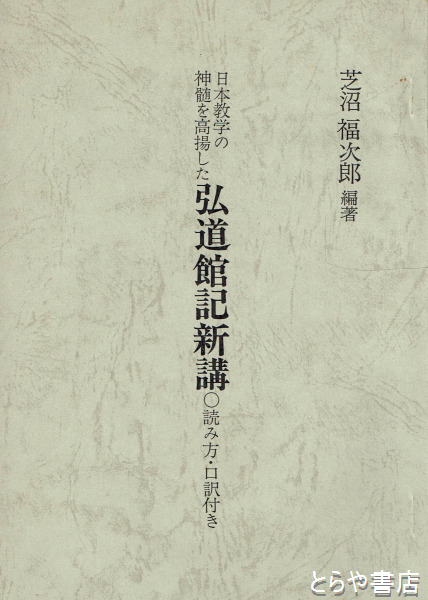 芝沼 福次郎 編著
日本教学の
神髄を高揚した
弘道館記新講
○読み方・口訳付き
とらや書店